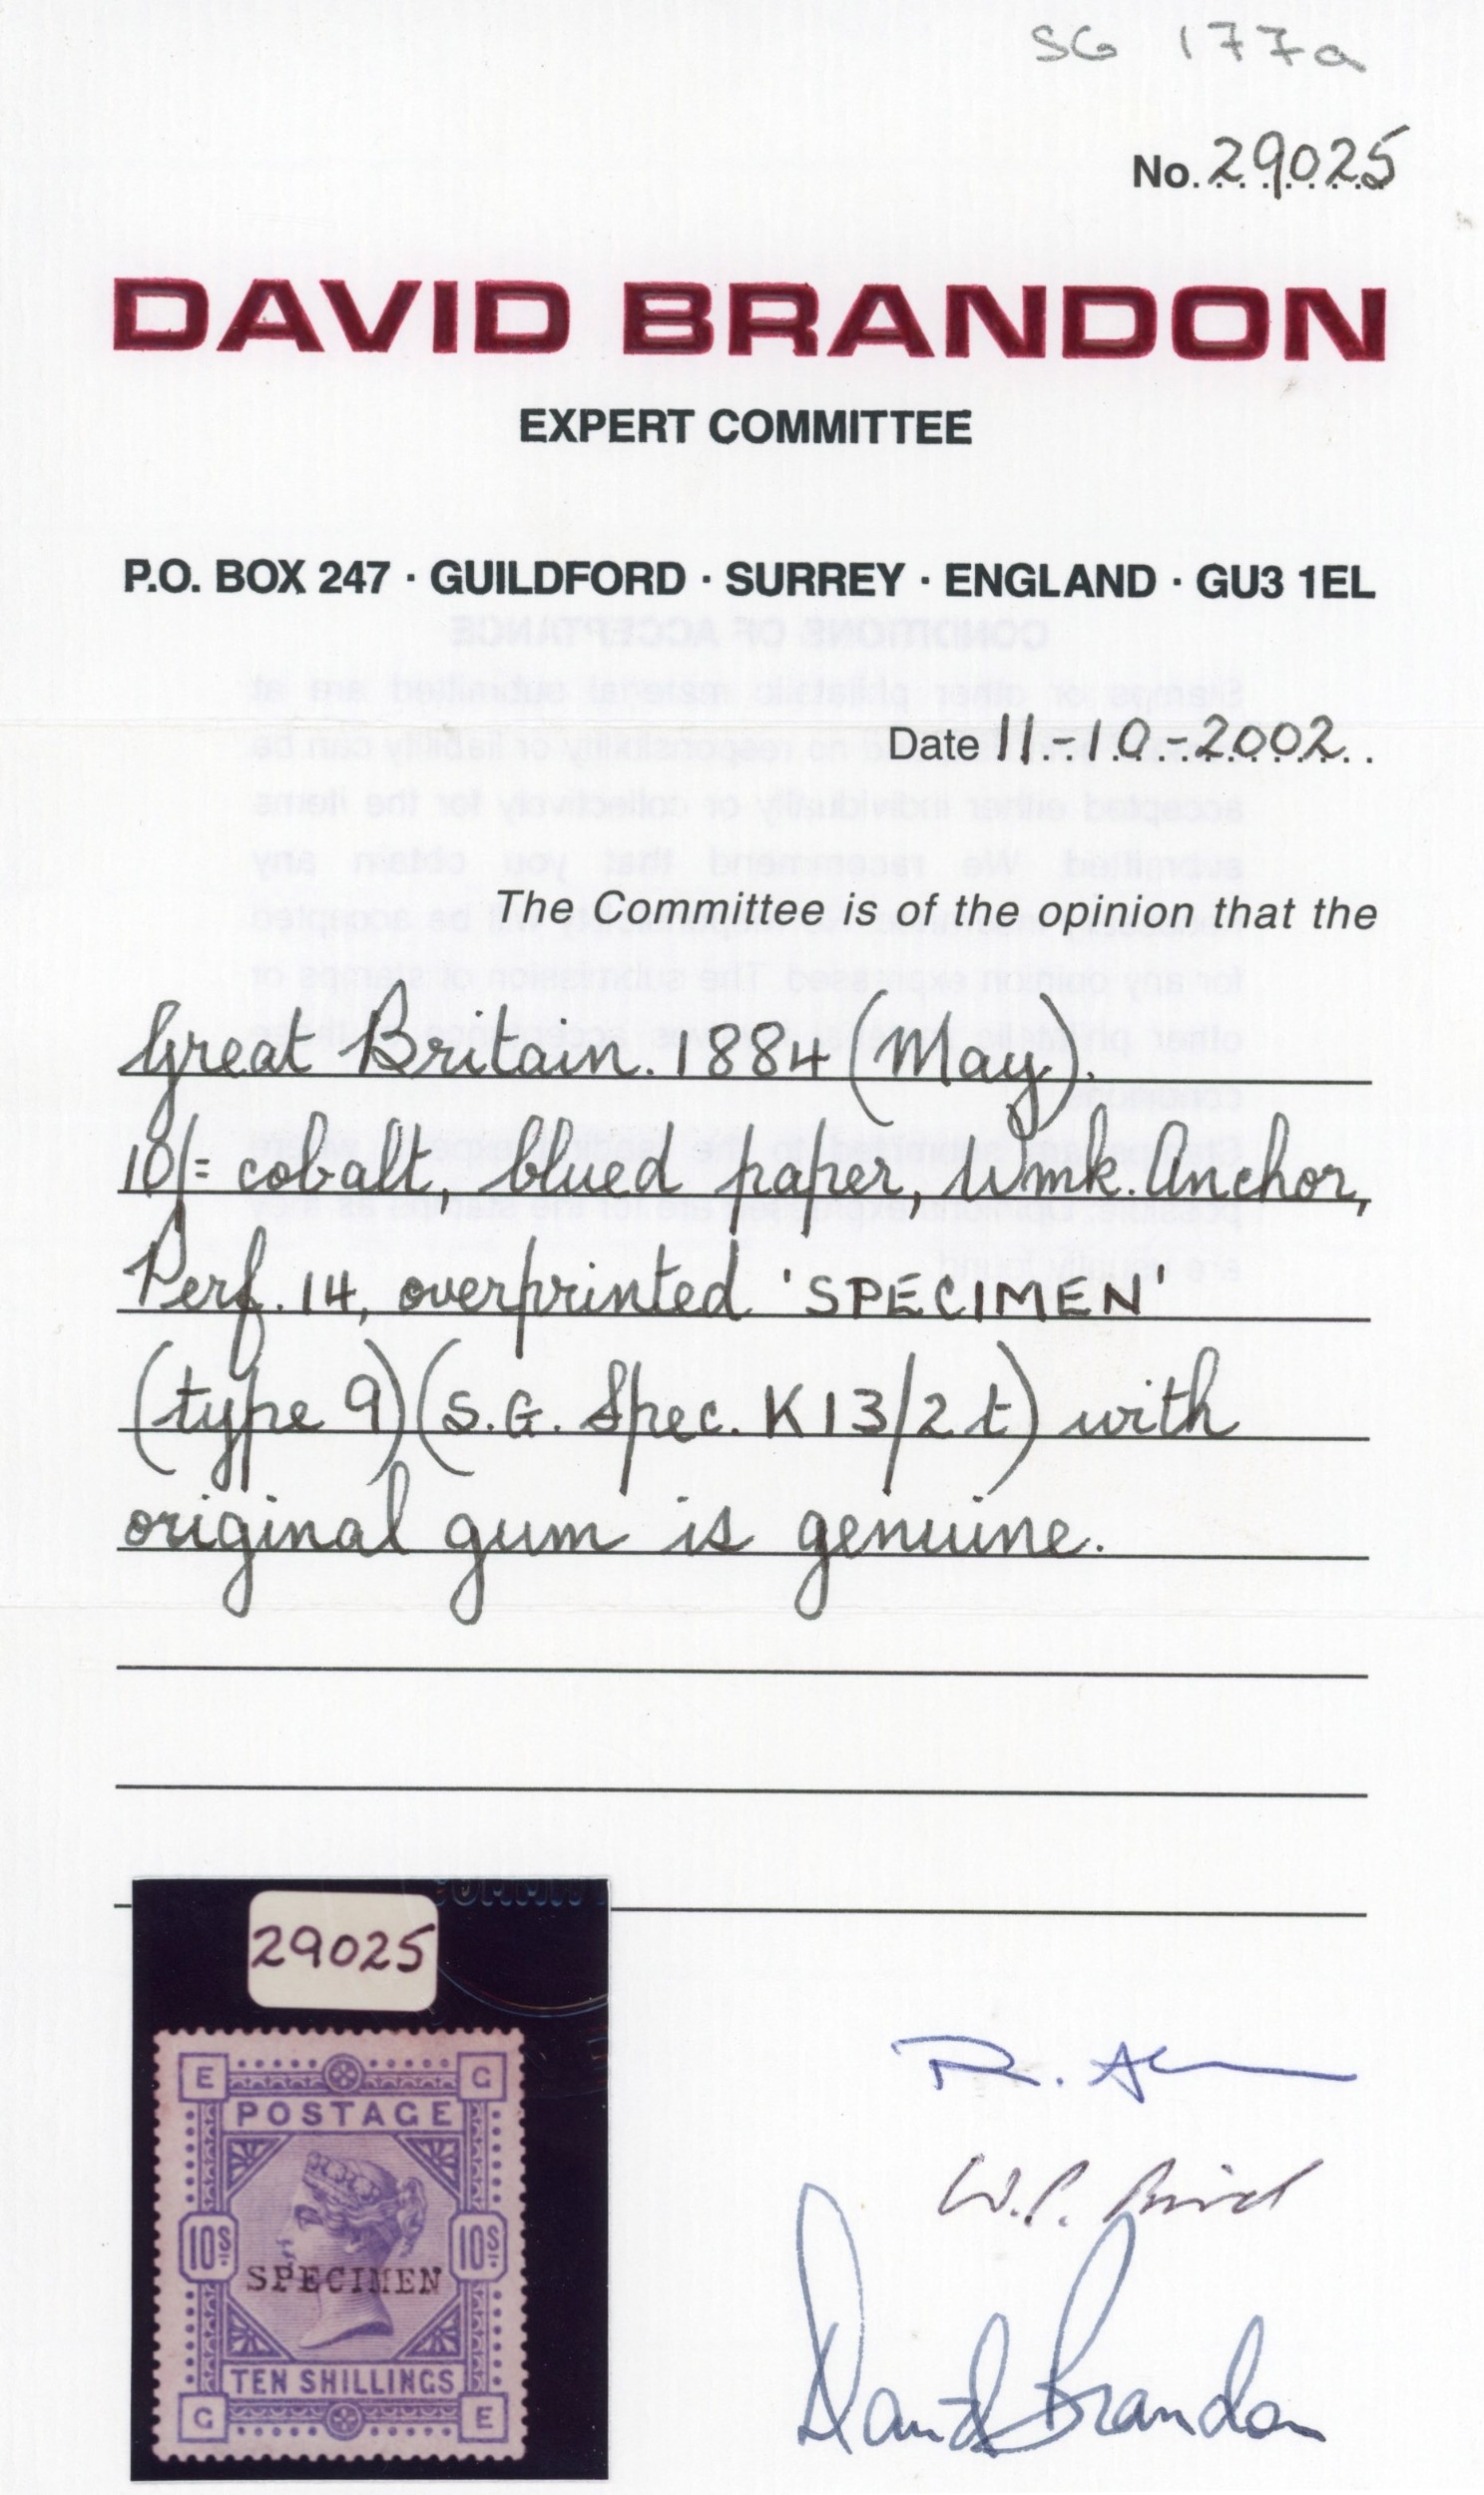 SG 177a
No. 29025
DAVID BRANDON
EXPERT COMMITTEE
P.O. BOX 247 · GUILDFORD · SURREY · ENGLAND · GU3 1EL
CONDITIONS OF ACCEPTANCE
Date 11-10-2002
The Committee is of the opinion that the
Great Britain. 1884 (May).
10/= cobalt, blued paper, Wmk. Anchor,
Perf. 14, overprinted 'SPECIMEN'
(type 9) (S.G. Spec. K13/2 t) with
original gum is genuine.
29025
E G
POSTAGE
10S 10S
SPECIMEN
TEN SHILLINGS
G E
R.
W.P.
David Brandon